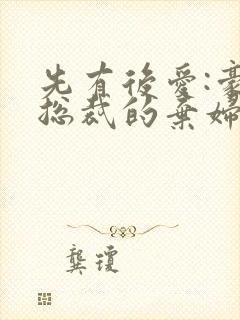 先有後愛:豪
總裁的棄婦
龔瓊